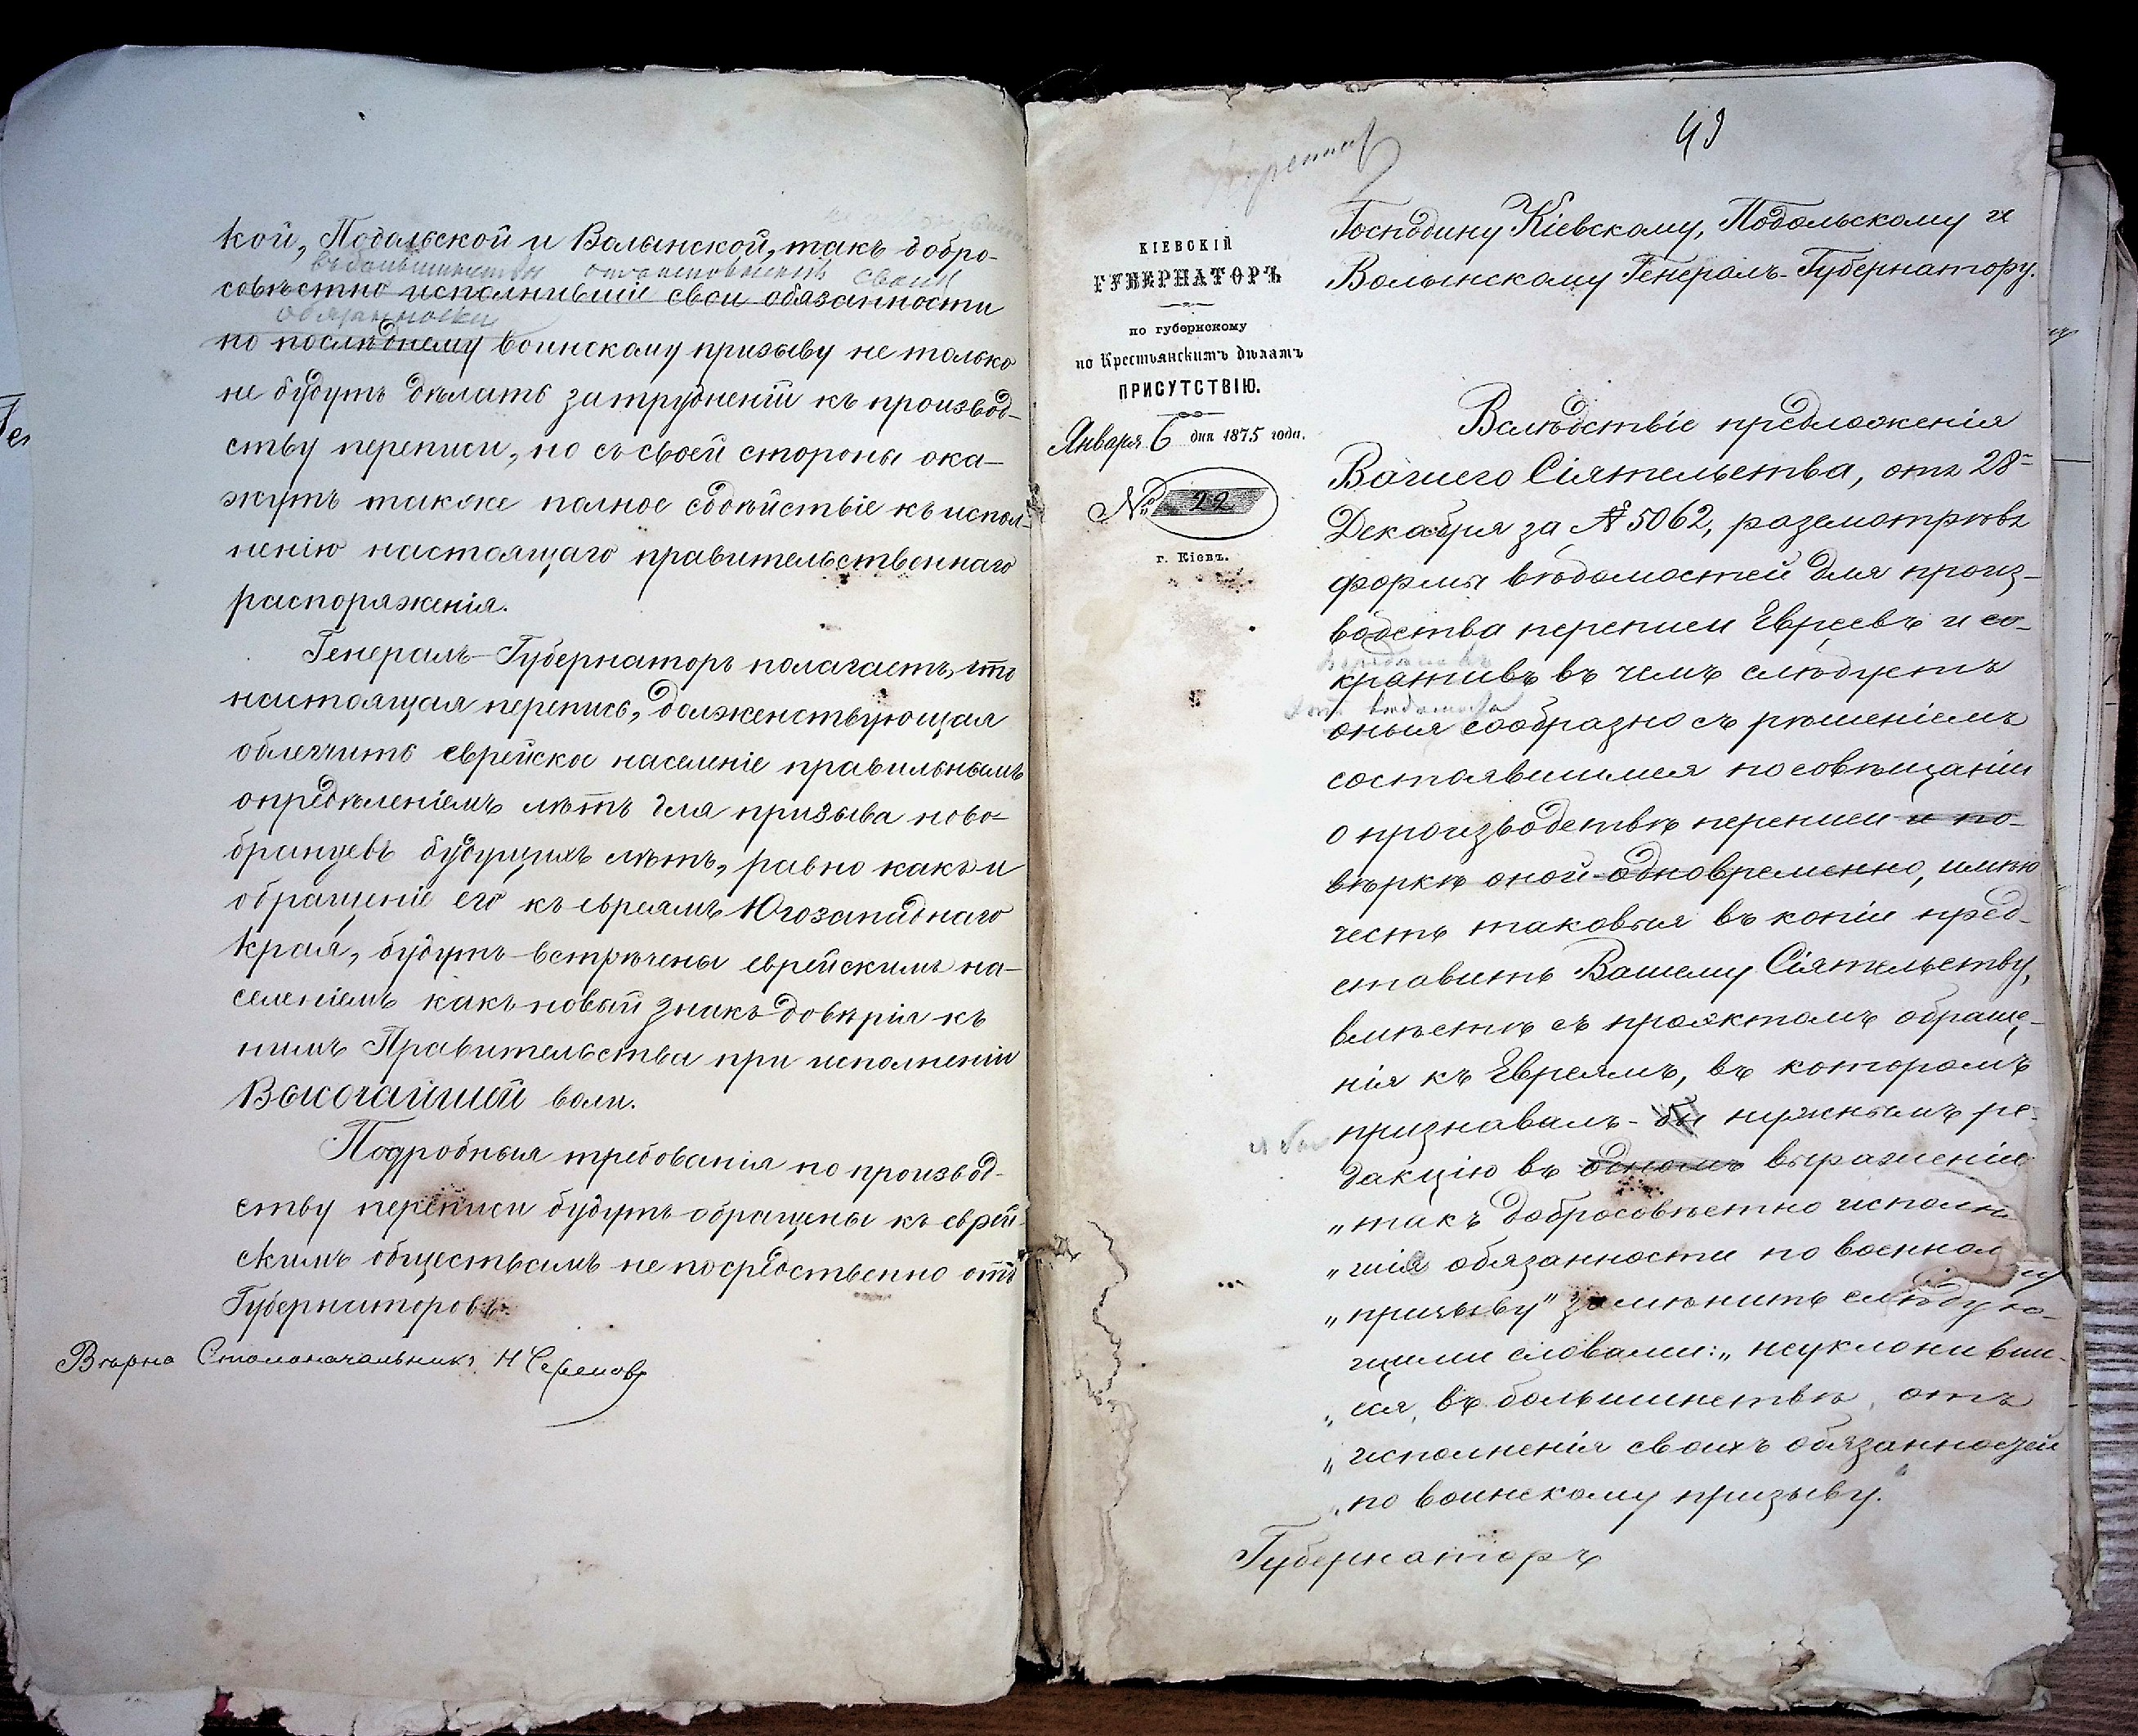 кой, Подольской и Волынской, такъ добро-
въ большинствѣ своихъ
совѣстно исполнившіе свои обязанности
обязанности
по послѣднему воинскому призыву не только
не будутъ дѣлать затрудненій къ производ-
ству переписи, но съ своей стороны ока-
жутъ также полное содѣйствіе къ испол-
ненію настоящаго правительственнаго
распоряженія.
Генералъ-Губернаторъ полагаетъ, что
настоящая перепись, долженствующая
облегчить еврейское населеніе правильнымъ
опредѣленіемъ лѣтъ для призыва ново-
бранцевъ будущихъ лѣтъ, равно какъ и
обращеніе его къ евреямъ Югозападнаго
края, будутъ встрѣчены еврейскимъ на-
селеніемъ какъ новый знакъ довѣрія къ
нимъ Правительства при исполненіи
Высочайшей воли.
Подробныя требованія по производ-
ству переписи будутъ обращены къ еврей-
скимъ обществамъ непосредственно отъ
Губернаторовъ.
Вѣрно Столоначальникъ Н
49
КІЕВСКІЙ
ГУБЕРНАТОРЪ
по губернскому
по Крестьянскимъ дѣламъ
ПРИСУТСТВІЮ.
Января 6 дня 1875 года.
№ 22
г. Кіевъ.
Господину Кіевскому, Подольскому и
Волынскому Генералъ-Губернатору.
Вслѣдствіе предложенія
Вашего Сіятельства, отъ 28
Декабря за № 5062, разсмотрѣвъ
формы вѣдомостей для произ-
водства переписи Евреевъ и со-
кративъ въ чемъ слѣдуетъ
оныя сообразно съ рѣшеніемъ
состоявшимся по совѣщаніи
о производствѣ переписи и по-
вѣркѣ оной одновременно, имѣю
честь таковыя въ копіи пред-
ставить Вашему Сіятельству,
вмѣстѣ съ проэктомъ обраще-
нія къ Евреямъ, въ которомъ
я бы
признавалъ-бы нужнымъ ре-
дакцію въ одномъ выраженіи
„такъ добросовѣстно исполн
„шія обязанности по военном
„призыву" замѣнить слѣдую-
щими словами: „неуклонивші-
„еся, въ большинствѣ, отъ
„исполненія своихъ обязанностей
„по воинскому призыву."
Губернаторъ